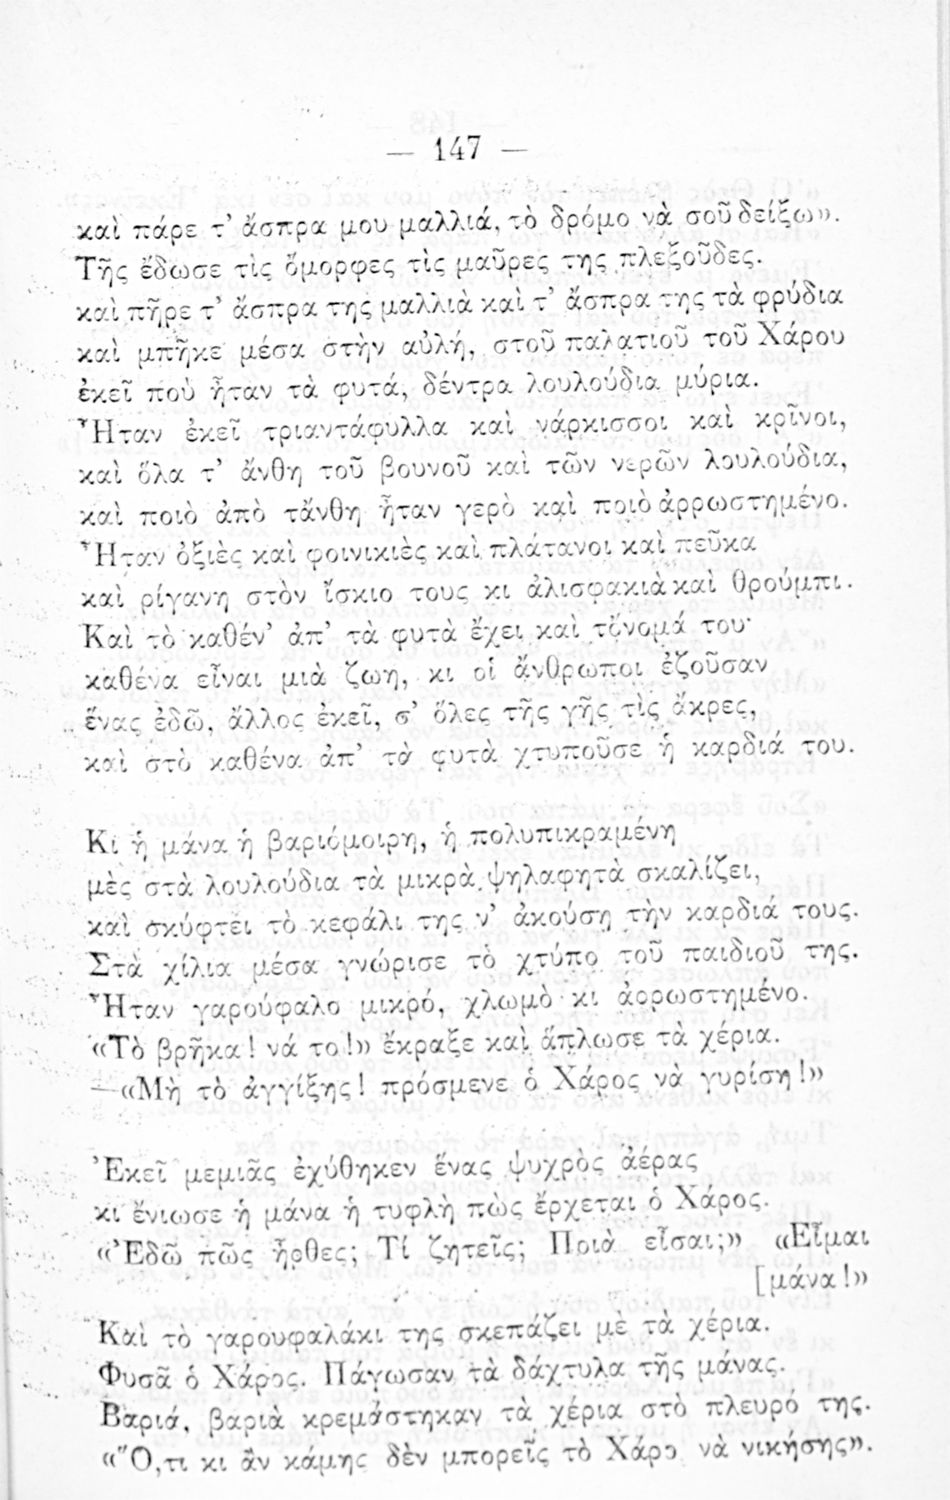 — 147 —
καὶ πάρε τ’ ἄσπρα μου μαλλιά, τὸ δρόμο νὰ σοῦ δείξω».
Τῆς ἔδωσε τὶς ὄμορφες τὶς μαῦρες της πλεξοῦδες.
καὶ πῆρε τ’ ἄσπρα της μαλλιὰ καὶ τ’ ἄσπρα της τὰ φρύδια
καὶ μπῆκε μέσα στὴν αὐλή, στοῦ παλατιοῦ τοῦ Χάρου
ἐκεῖ ποὺ ἦταν τὰ φυτά, δέντρα λουλούδια μύρια.
Ἦταν ἐκεῖ τριαντάφυλλα καὶ νάρκισσοι καὶ κρῖνοι,
καὶ ὅλα τ’ ἄνθη τοῦ βουνοῦ καὶ τῶν νερῶν λουλούδια,
καὶ ποιὸ ἀπὸ τἄνθη ἦταν γερὸ καὶ ποιὸ ἀρρωστημένο.
Ἦταν ὀξιὲς καὶ φοινικιὲς καὶ πλάτανοι καὶ πεῦκα
καὶ ρίγανη στὸν ἴσκιο τους κι ἀλισφακιὰ καὶ θρούμπι.
Καὶ τὸ καθέν’ ἀπ’ τὰ φυτὰ ἔχει καὶ τὄνομά του·
καθένα εἶναι μιὰ ζωη, κι οἱ ἄνθρωποι ἐζοῦσαν
ἕνας ἐδῶ, ἄλλος ἐκεῖ, σ’ ὅλες τῆς γῆς τὶς ἄκρες,
καὶ στὸ καθένα ἀπ’ τὰ φυτὰ χτυποῦσε ἡ καρδιά του.
Κι ἡ μάνα ἡ βαριόμοιρη, ἡ πολυπικραμένη
μὲς στὰ λουλούδια τὰ μικρὰ ψηλαφητὰ σκαλίζει,
καὶ σκύφτει τὸ κεφάλι της ν’ ἀκούση τὴν καρδιά τους.
Στὰ χίλια μέσα γνώρισε τὸ χτύπο τοῦ παιδιοῦ της.
Ἦταν γαρούφαλο μικρό, χλωμὸ κι ἀρρωστημένο.
«Τὸ βρῆκα! νά το!» ἔκραξε καὶ ἅπλωσε τὰ χέρια.
—«Μὴ τὸ ἀγγίξης! πρόσμενε ὁ Χάρος νὰ γυρίση!»
Ἐκεῖ μεμιᾶς ἐχύθηκεν ἕνας ψυχρὸς ἀέρας
κι ἔνιωσε ἡ μάνα ἡ τυφλὴ πὼς ἔρχεται ὁ Χάρος.
«Ἐδῶ πῶς ἦρθες; Τί ζητεῖς; Ποιὰ εἶσαι;» «Εἶμαι
[μανα!»
Καὶ τὸ γαρουφαλάκι της σκεπάζει μὲ τὰ χέρια.
Φυσᾶ ὁ Χάρος. Πάγωσαν τὰ δάχτυλα τῆς μάνας.
Βαριά, βαριὰ κρεμάστηκαν τὰ χέρια στὸ πλευρό της.
«Ὅ,τι κι ἂν κάμης δὲν μπορεῖς τὸ Χάρο νὰ νικήσης».